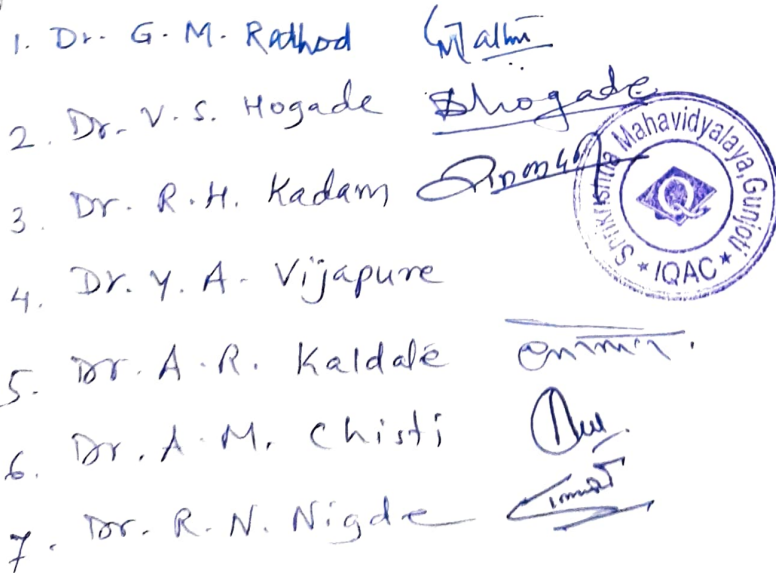 1. Dr. G. M. Rathod
2. Dr. V. S. Hogade Shogade
3. Dr. R. H. Kadam
4. Dr. Y. A. Vijapure
5. Dr. A. R. Kaldate
6. Dr. A. M. Chisti
7. Dr. R. N. Nigde
Shrikrishna Mahavidyalaya, Gunjoti
* IQAC *